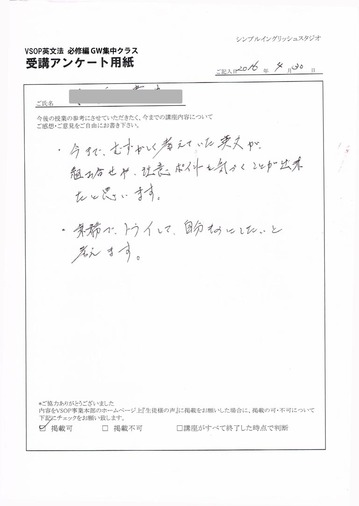 シンプルイングリッシュスタジオ
VSOP英文法 必修編 GW集中クラス
受講アンケート用紙
ご記入日 2016 年 4 月 30 日
ご氏名
今後の授業の参考にさせていただきたく、今までの講座内容について
ご感想・ご意見をご自由にお書き下さい。
・今まで、むずかしく考えていた英文が、
組み合せや、注意ポイントも気づくことが出来
たと思います。
・業務で、トライして、自分ものにしたいと
考えます。
*ご協力ありがとうございました
内容をVSOP事業本部のホームページ上『生徒様の声』に掲載をお願いした場合に、掲載の可・不可について
下記にチェックをお願い致します。
☑ 掲載可 □ 掲載不可 □講座がすべて終了した時点で判断